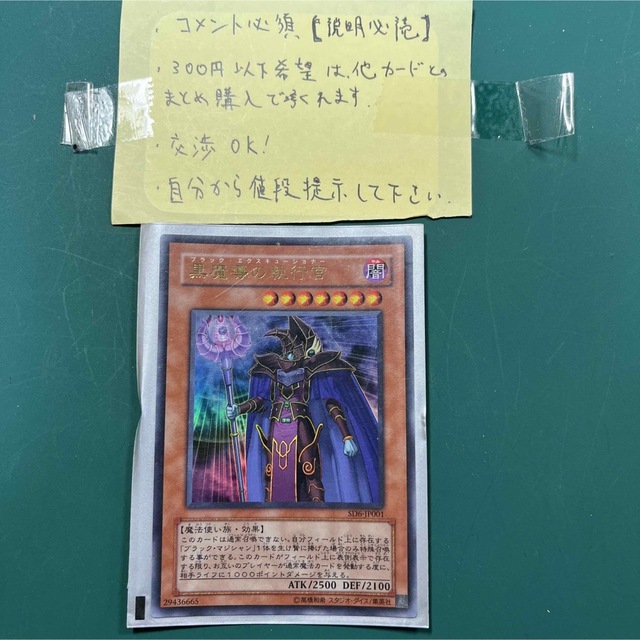 ・コメント必須【説明必読】
・300円以下希望は、他カードとの
まとめ購入で承くれます。
・交渉 OK!
・自分から値段提示して下さい。
ブラック エクスキューショナー
黒魔導の執行官
闇
SD6-JP001
【魔法使い族・効果】
このカードは通常召喚できない。自分フィールド上に存在する
「ブラック・マジシャン」1体を生け贄に捧げた場合のみ特殊召喚
する事ができる。このカードがフィールド上に表側表示で存在する
限り、お互いのプレイヤーが通常魔法カードを発動する度に、
相手ライフに1000ポイントダメージを与える。
ATK/2500 DEF/2100
29436665
©高橋和希 スタジオ・ダイス/集英社